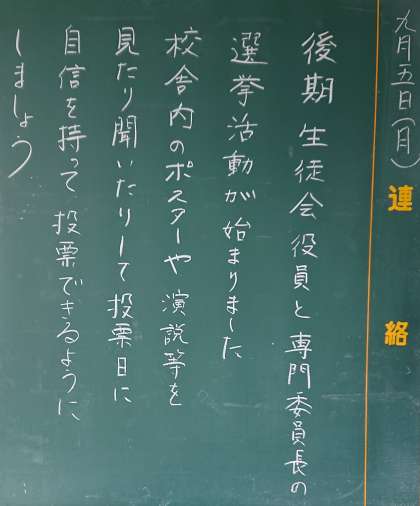 九月五日(月)
連絡
後期生徒会役員と専門委員長の
選挙活動が始まりました
校舎内のポスターや演説等を
見たり聞いたりして投票日に
自信を持って投票できるように
しましょう